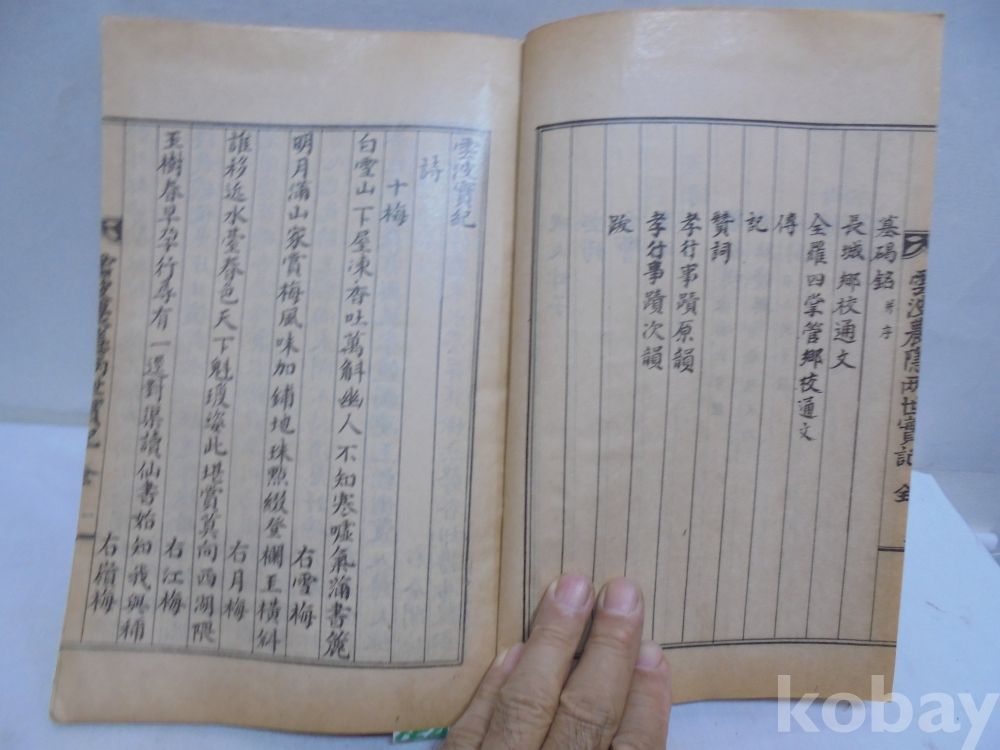 雲波農隱兩世實記 全
墓碣銘 并序
長城鄉校通文
全羅四掌管鄉校通文
傳
記
贊詞
孝行事蹟原韻
孝行事蹟次韻
跋
雲波實紀
詩
十梅
白雪山下屋凍香吐萬斛幽人不知寒噓氣滿書簏
右雪梅
明月滿山家賞梅風味加鋪地珠點綴登欄玉橫斜
右月梅
誰移近水臺春色天下魁瓊姿此堪賞莫向西湖隈
右江梅
玉樹春早孕行尋有一逕對渠讀仙書始知我與稱
右嶺梅
kobay